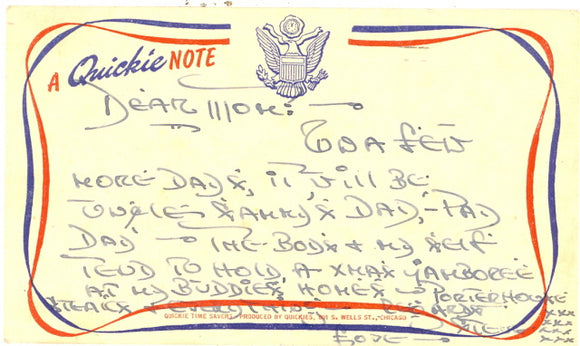 A Quickie NOTE
DEAR MOM: —
IN A FEW
MORE DAYS, IT WILL BE
UNCLE SAMMY'S DAY, - PAY
DAY — THE BOYS & MY SELF
TEND TO HOLD A XMAS JAMBOREE
AT MY BUDDIES HOMES — PORTERHOUSE
STEAKS & EVERYTHING — REGARDS
QUICKIE TIME SAVERS, PRODUCED BY QUICKIES, S. WELLS ST., CHICAGO
XXX
LOVE —
XXX
XXX